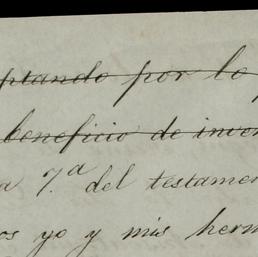 ptando por lo
beneficio de inven
a 7.ª del testamen
os yo y mis herm